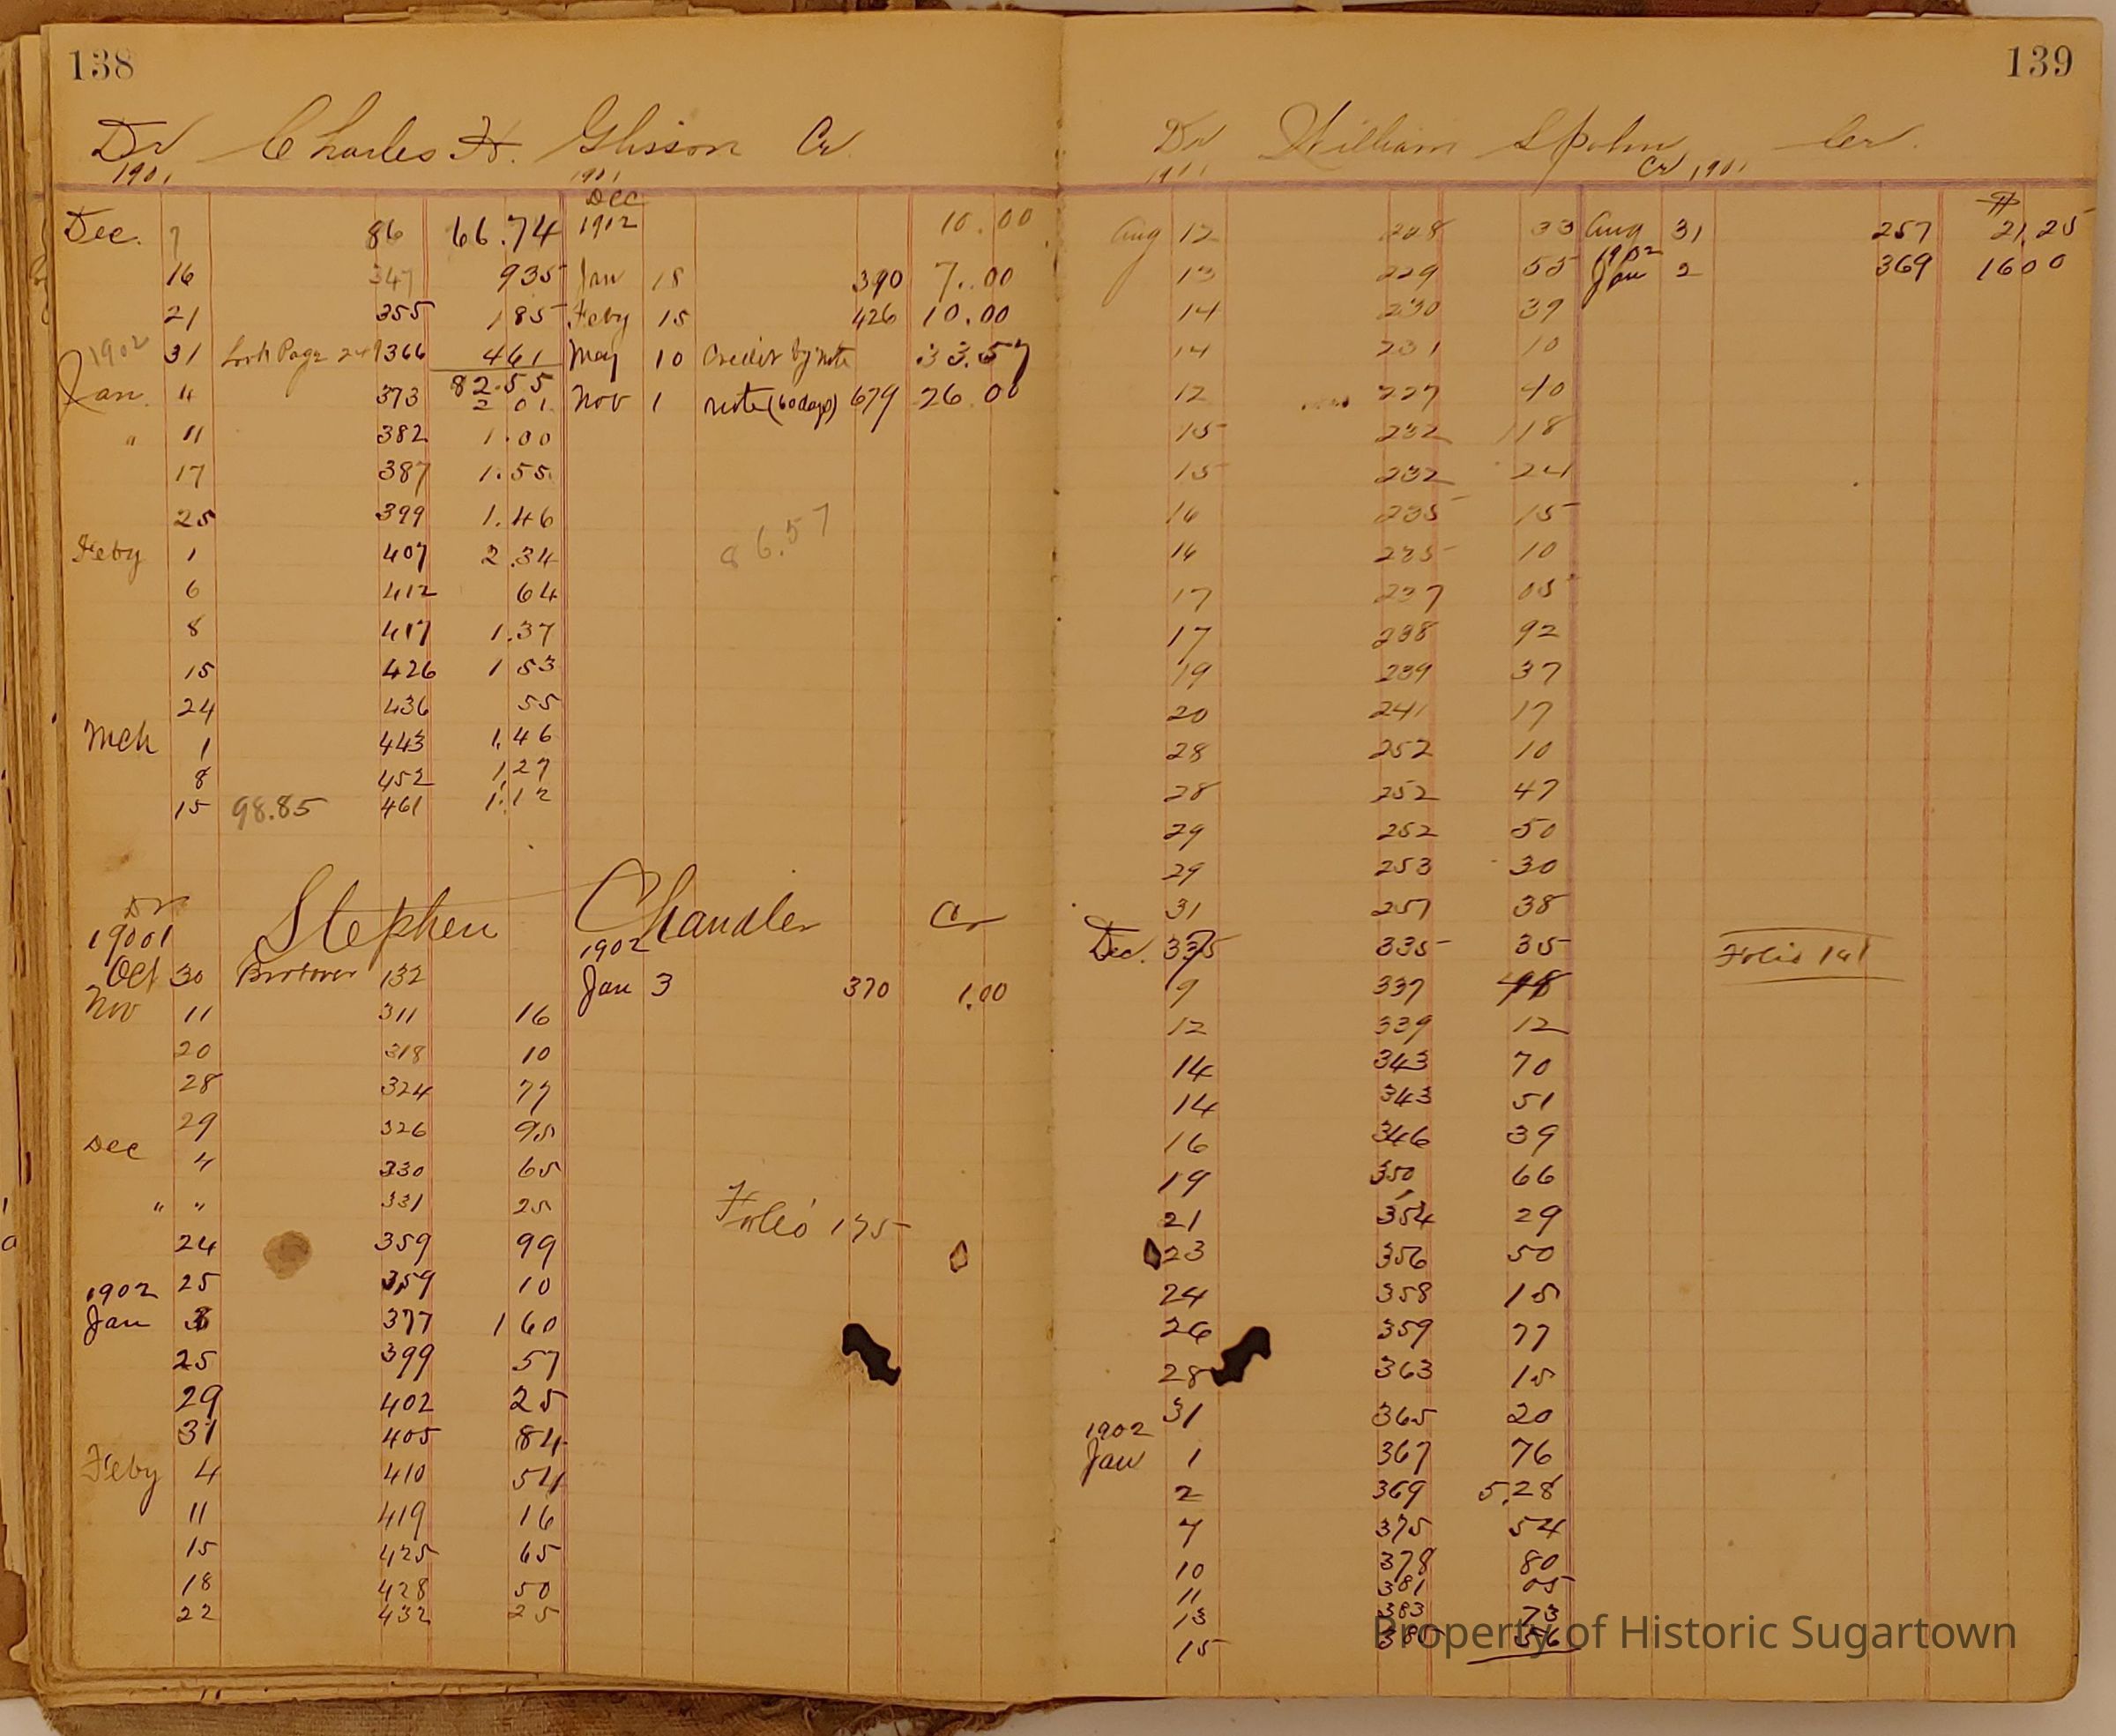 138
Dr Charles H. Glisson Cr
1901 1901
Dec
Dec. 7 86 66.74 1902 10.00
16 347 935 Jan 18 390 7.00
21 355 185 Feby 15 426 10.00
1902 31 Look Page 249 366 461 May 10 Credit by note 33.57
82.55
Jan. 4 373 2 01 Nov 1 note (60 days) 679 26 00
" 11 382 1.00
17 387 1.55
25 399 1.46
86.57
Feby 1 407 2.34
6 412 64
8 417 1.37
15 426 1 53
24 436 55
Mch 1 443 1.46
8 452 1.27
15 98.85 461 1.12
Dr Stephen Chandler Cr
19001 1902
Oct 30 Brotover 132 Jan 3 370 1.00
Nov 11 311 16
20 318 10
28 324 77
29 326 95
Dec 4 330 65
" " 331 25
Folio 175
24 359 99
25 359 10
1902
Jan 8 377 1 60
25 399 57
29 402 25
31 405 84
Feby 4 410 54
11 419 16
15 425 65
18 428 50
22 432 25
139
Dr William Spohn Cr.
1901 Cr 1901
Aug 12 228 33 Aug 31 257 21.25
1902
13 229 55 Jan 2 369 1600
14 230 39
14 231 10
12 227 40
15 232 118
15 232 24
16 235 15
16 235 10
17 237 05
17 238 92
19 239 37
20 241 17
28 252 10
28 252 47
29 252 50
29 253 30
31 257 38
Dec. 335 35 Folio 141
9 337 48
12 339 12
14 343 70
14 343 51
16 346 39
19 350 66
21 354 29
23 356 50
24 358 15
26 359 77
28 363 15
31 365 20
1902
Jan 1 367 76
2 369 5.28
7 375 54
10 378 80
11 381 05
13 383 73
15 385 56
Property of Historic Sugartown